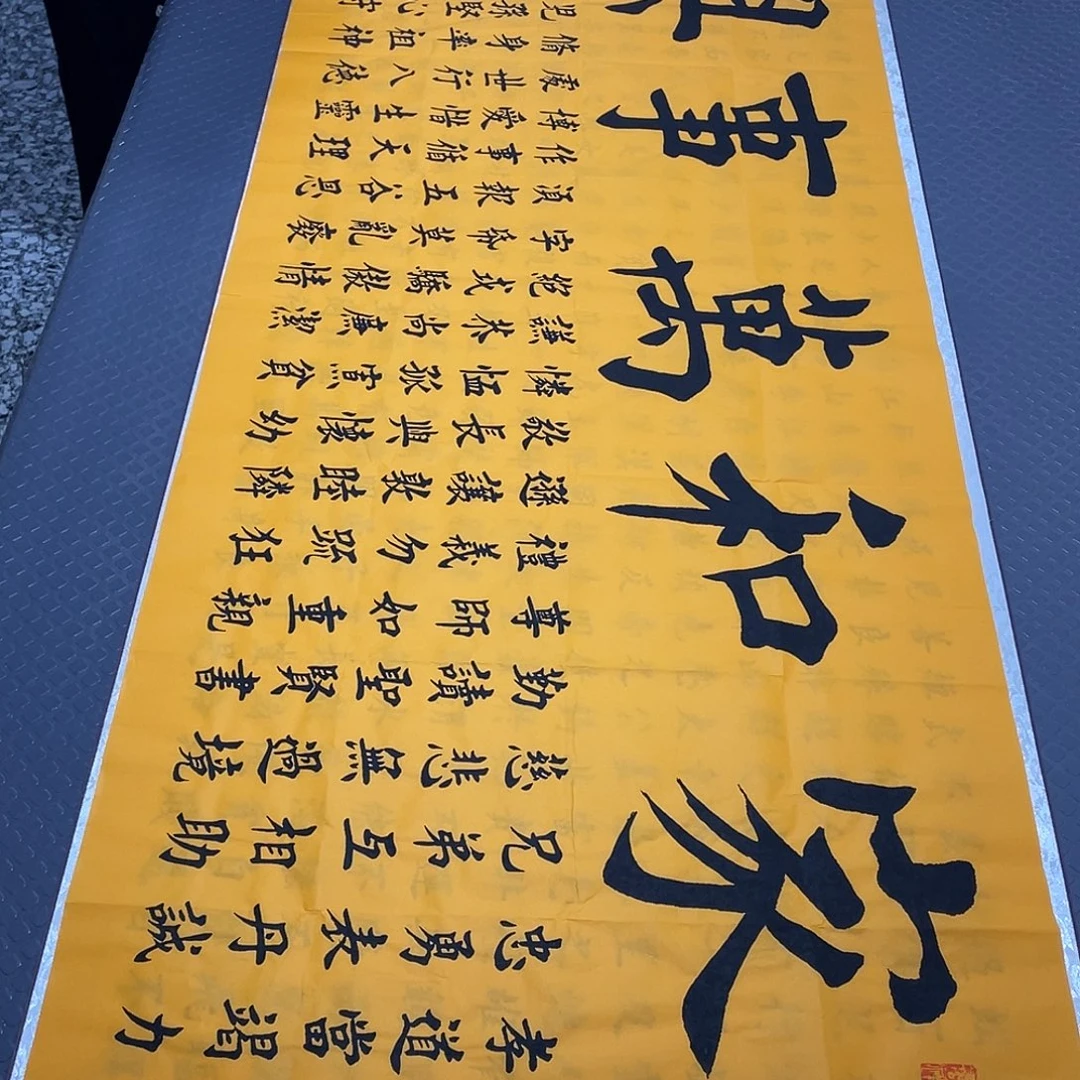 家和萬事興
孝道當竭力
忠勇表丹誠
兄弟互相助
慈悲無過境
勤讀聖賢書
尊師如重親
禮義勿疏狂
遜讓敦睦隣
敬長與懷幼
憐恤孤寡貧
謙恭尚廉潔
絕戒驕傲情
字帋莫亂廢
須報五谷恩
作事循天理
博愛惜生靈
處世行八德
脩身率祖神
兒孫堅心守